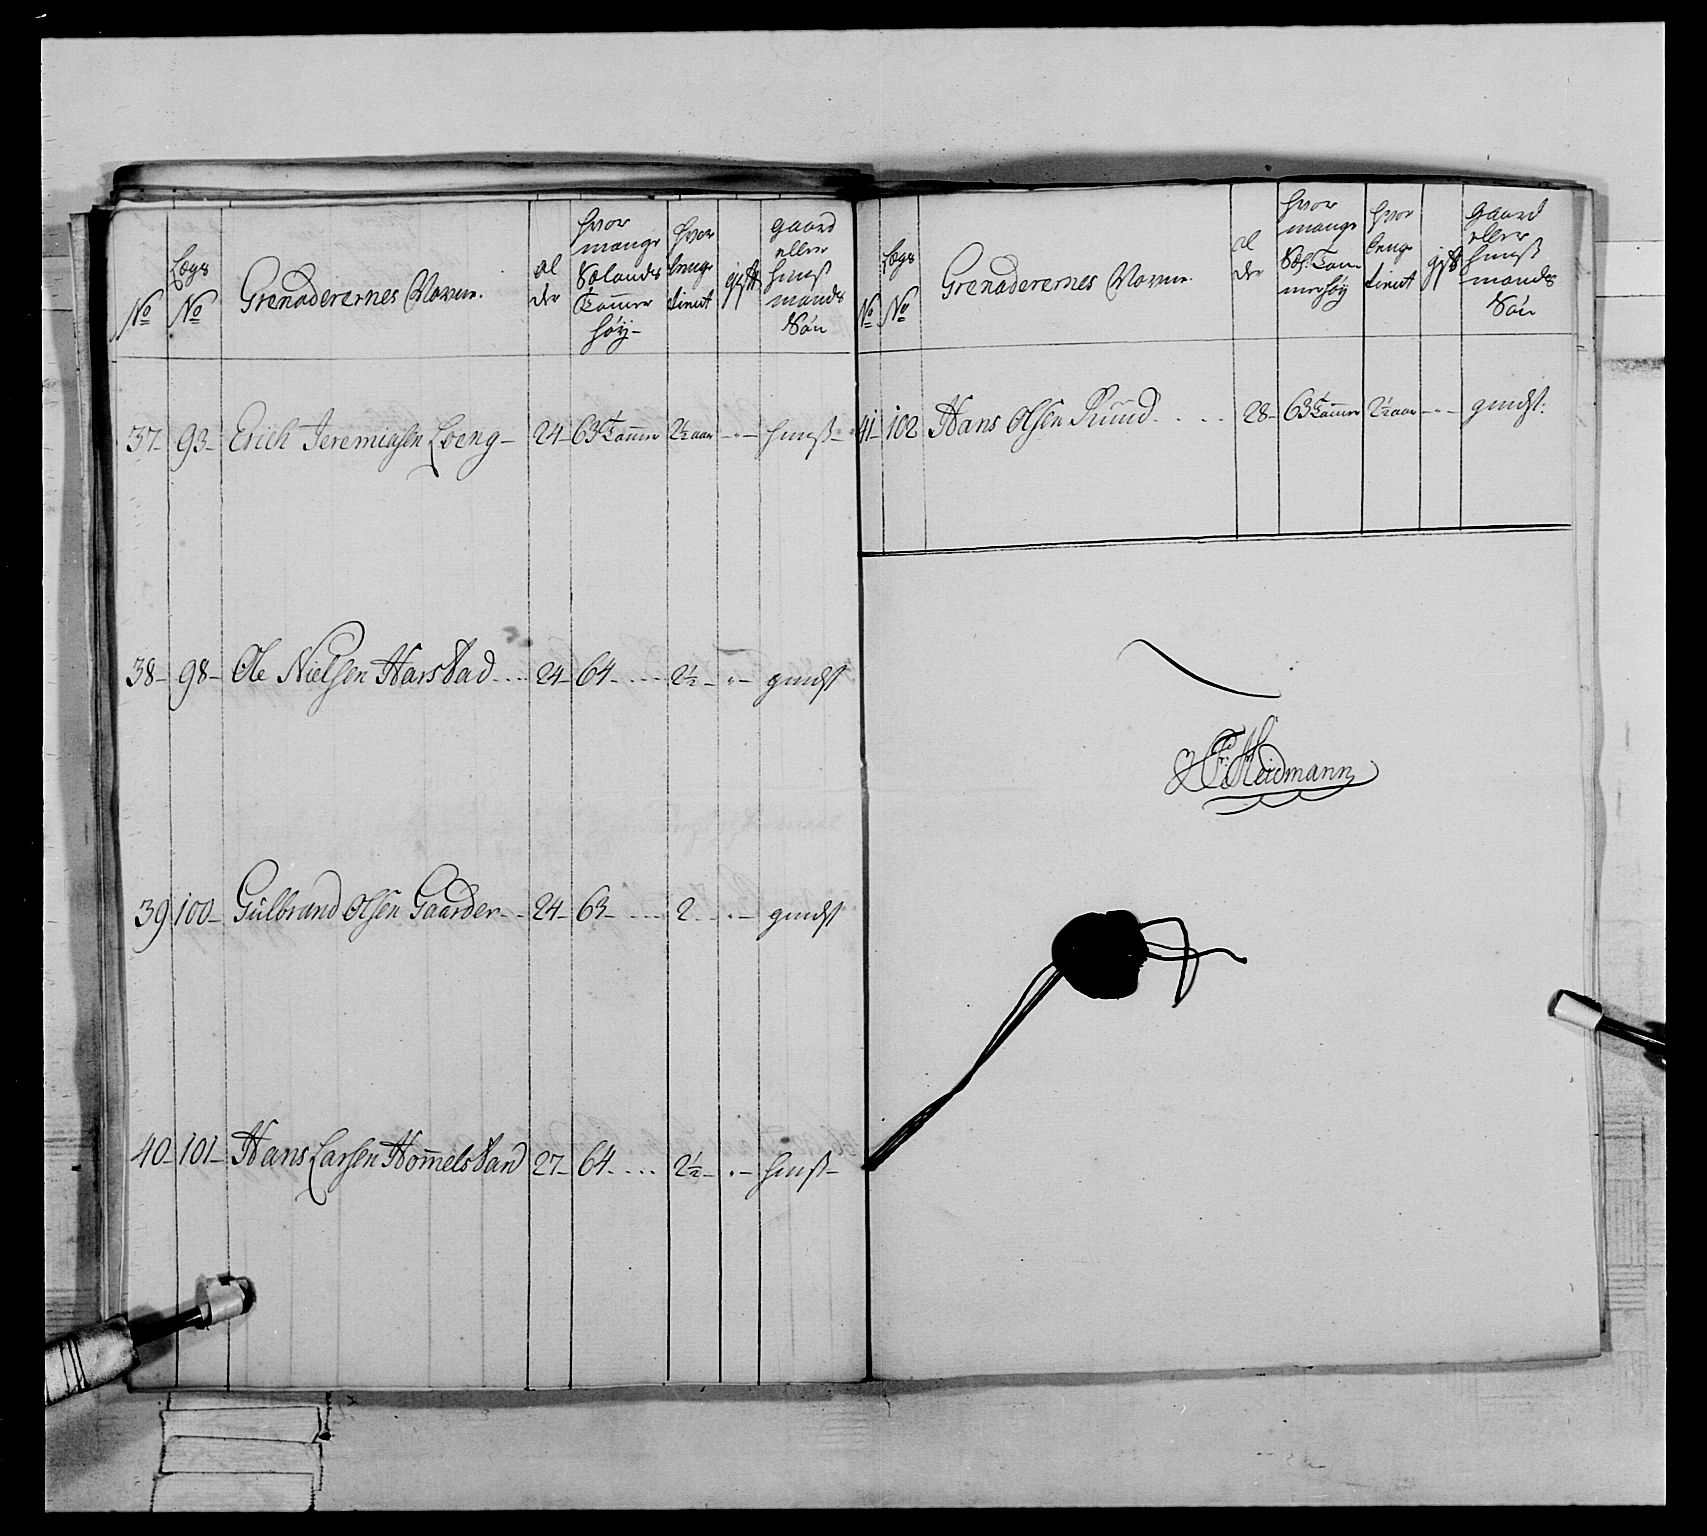 No
Lægs No
Grenaderernes Navne.
al der
hvor mange Sælands Tommer høy-
hvor lenge tient
gift
gaard eller huus mands Søn
37- 93- Erich Jeremiasen Loeng- 24- 63 Tomer 2½ aar -"- huus-
38- 98- Ole Nielsen Harstad... 24- 64-.... 2½- "- gaards
39 100- Gülbrand Olsen Gaarder-.. 24- 63-.... 2.. "- gaards
40- 101- Hans Larsen Hom̄elstad 27- 64-.... 2½- "- huus-
No
Lægs No
Grenaderernes Navne.
al der
hvor mange Sæl: Tommer høy
hvor lenge tient
gift
gaard eller huus mands Søn
41- 102 Hans Olsen Ruud.... 28- 63 Tomer 2½ aar -"- gaards:
Heidmann